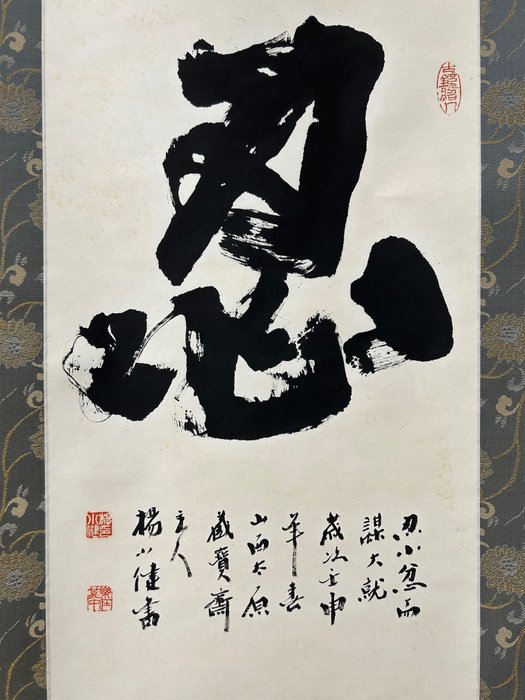 忍
忍小忿而
謀大就
歲次壬申
年春
山西太原
藏寶齋
主人
楊小健書